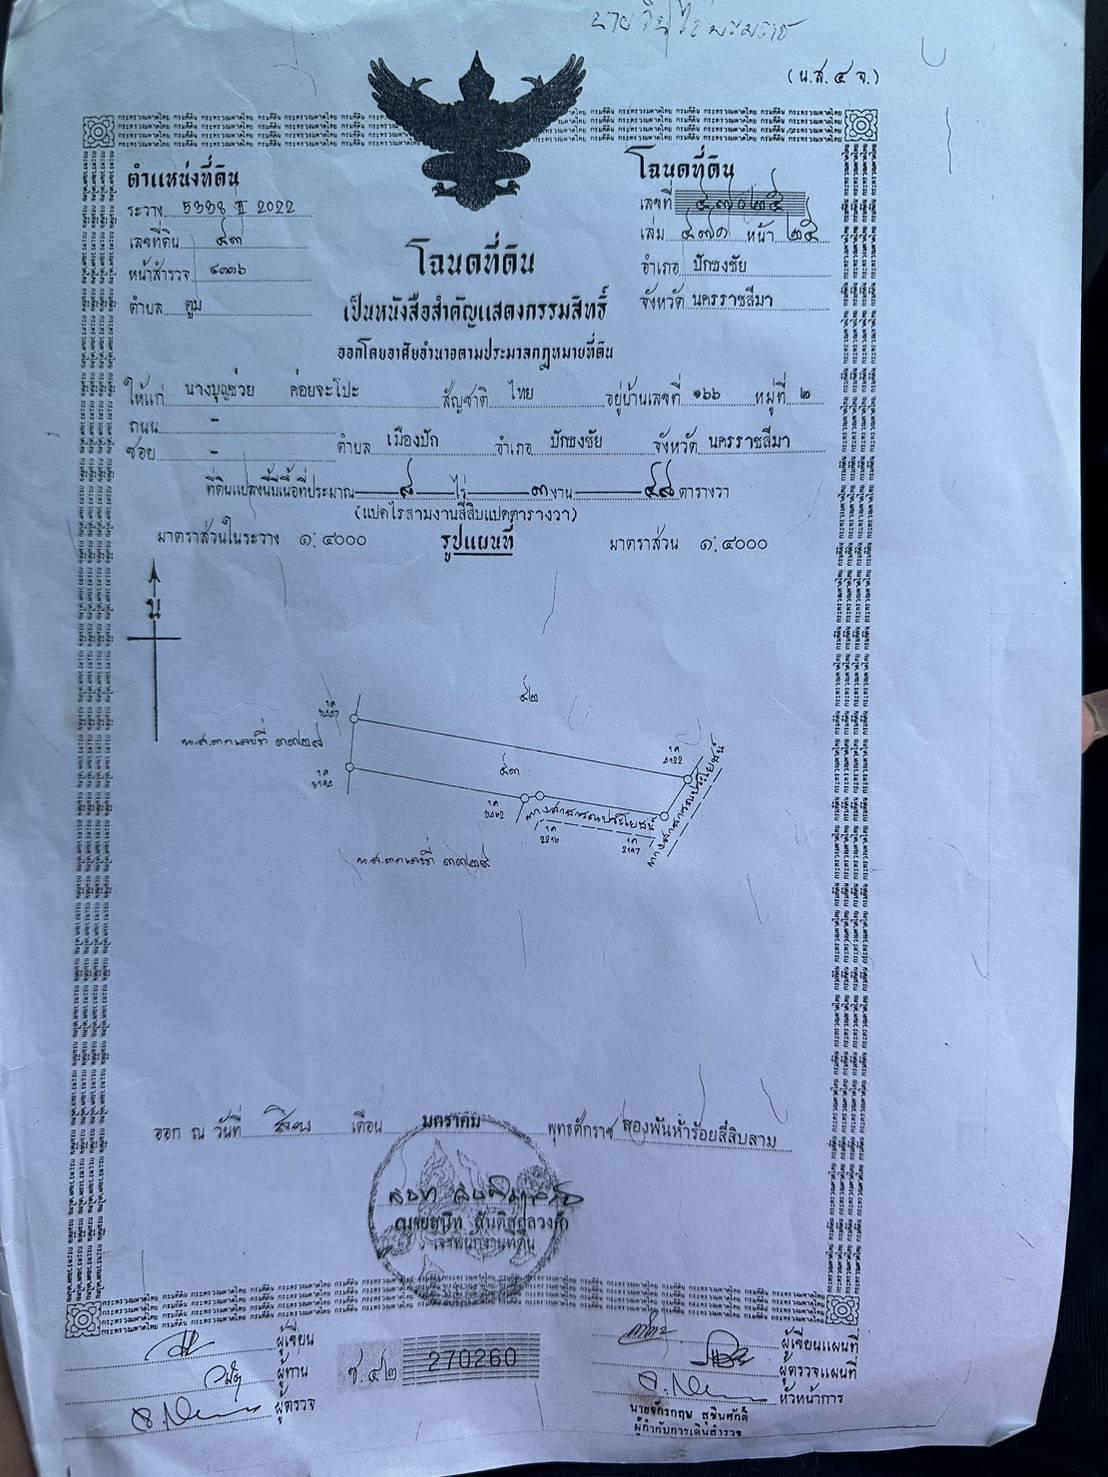 (น.ส.๔ จ.)
ตำแหน่งที่ดิน
ระวาง 5338 II 2022
เลขที่ดิน ๕๓
หน้าสำรวจ ๔๓๓๖
ตำบล ตูม
โฉนดที่ดิน
เลขที่ ๔๗๐๒๕
เล่ม ๔๗๑ หน้า ๒๕
อำเภอ ปักธงชัย
จังหวัด นครราชสีมา
โฉนดที่ดิน
เป็นหนังสือสำคัญแสดงกรรมสิทธิ์
ออกโดยอาศัยอำนาจตามประมวลกฎหมายที่ดิน
ให้แก่ นางบุญช่วย ค่อยจะโปะ สัญชาติ ไทย อยู่บ้านเลขที่ ๑๖๖ หมู่ที่ ๒
ถนน -
ซอย - ตำบล เมืองปัก อำเภอ ปักธงชัย จังหวัด นครราชสีมา
ที่ดินแปลงนี้มีเนื้อที่ประมาณ ๘ ไร่ ๓ งาน ๔๘ ตารางวา
(แปดไร่สามงานสี่สิบแปดตารางวา)
มาตราส่วนในระวาง ๑:๔๐๐๐ รูปแผนที่ มาตราส่วน ๑:๔๐๐๐
น
๕๒
น.ส.๓ก เลขที่ ๓๓๒๘
๕๓
ทางสาธารณประโยชน์
ทางสาธารณประโยชน์
น.ส.๓ก เลขที่ ๓๓๒๙
ออก ณ วันที่ เดือน มกราคม พุทธศักราช สองพันห้าร้อยสี่สิบสาม
เจ้าพนักงานที่ดิน
ผู้เขียน
ผู้ทาน
ผู้ตรวจ
ช.๔๒ 270260
ผู้เขียนแผนที่
ผู้ตรวจแผนที่
หัวหน้าการ
นายจักรกฤษ สุชินศักดิ์
ผู้กำกับการเดินสำรวจ